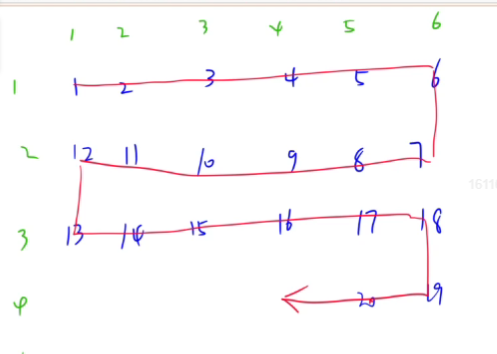 1 2 3 4 5 6
1 1 2 3 4 5 6
2 12 11 10 9 8 7
1611
3 13 14 15 16 17 18
4 20 19